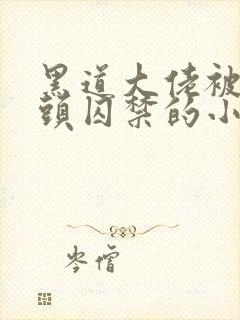 黑道大佬被
頭囚禁的小
岑僧